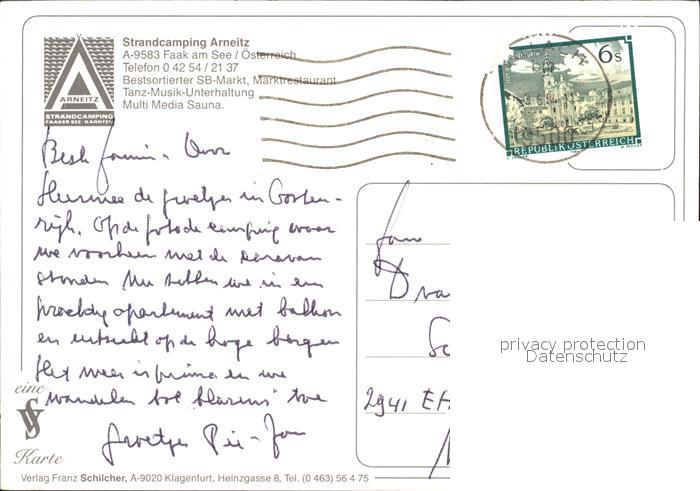 Strandcamping Arneitz
A-9583 Faak am See / Österreich
Telefon 0 42 54 / 21 37
Bestsortierter SB-Markt, Marktrestaurant
Tanz-Musik-Unterhaltung
Multi Media Sauna.
ARNEITZ
STRANDCAMPING
FAAKER SEE · KÄRNTEN
6s
REPUBLIK ÖSTERREICH
Beste
Hiermee de groetjes in Oosten-
rijk. Op de foto de camping waar
we voorheen met de caravan
stonden Nu zitten we in een
prachtig apartement met balkon
en uitzicht op de hoge bergen
Het weer is prima en we
wandelen
groetjes
2941
privacy protection
Datenschutz
eine
VS
Karte
Verlag Franz Schilcher, A-9020 Klagenfurt, Heinzgasse 8, Tel. (0 463) 56 4 75